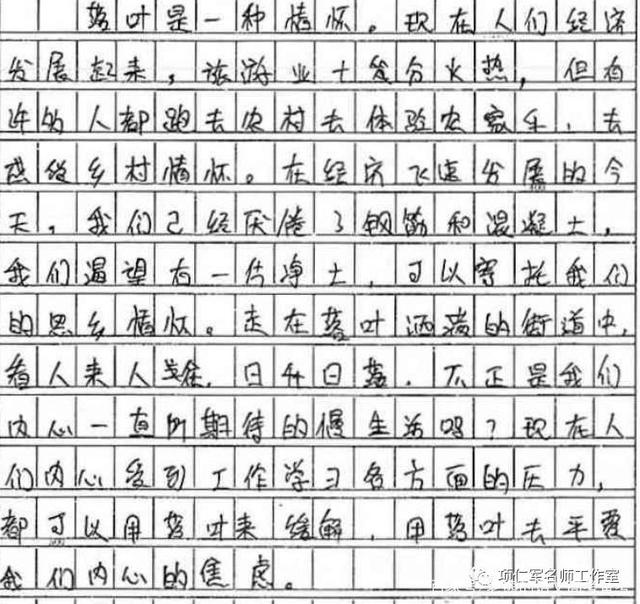 落叶是一种情怀。现在人们经济
发展起来，旅游业十发分火热，但有
许的人都跑去农村去体验农家乐，去
感级乡村情怀。在经济飞速发展的今
天，我们已经厌倦了钢筋和混凝土，
我们渴望有一片净土，可以寄托我们
的思乡情怀。走在落叶洒满的街道中，
看人来人往，日升日落，不正是我们
内心一直所期待的慢生活吗？现在人
们内心受到工作学习各方面的压力，
都可以用落叶来缓解，用落叶去平复
我们内心的焦虑。
项仁军名师工作室